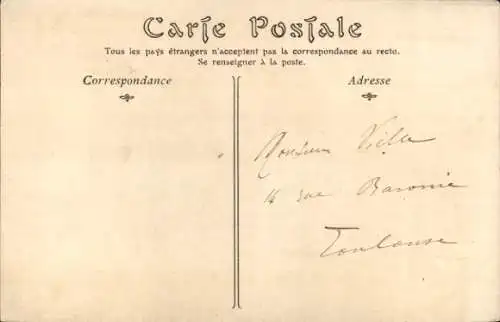 Carte Postale
Tous les pays étrangers n'acceptent pas la correspondance au recto.
Se renseigner à la poste.
Correspondance
Adresse
Monsieur Ville
14 rue Baronie
Toulouse